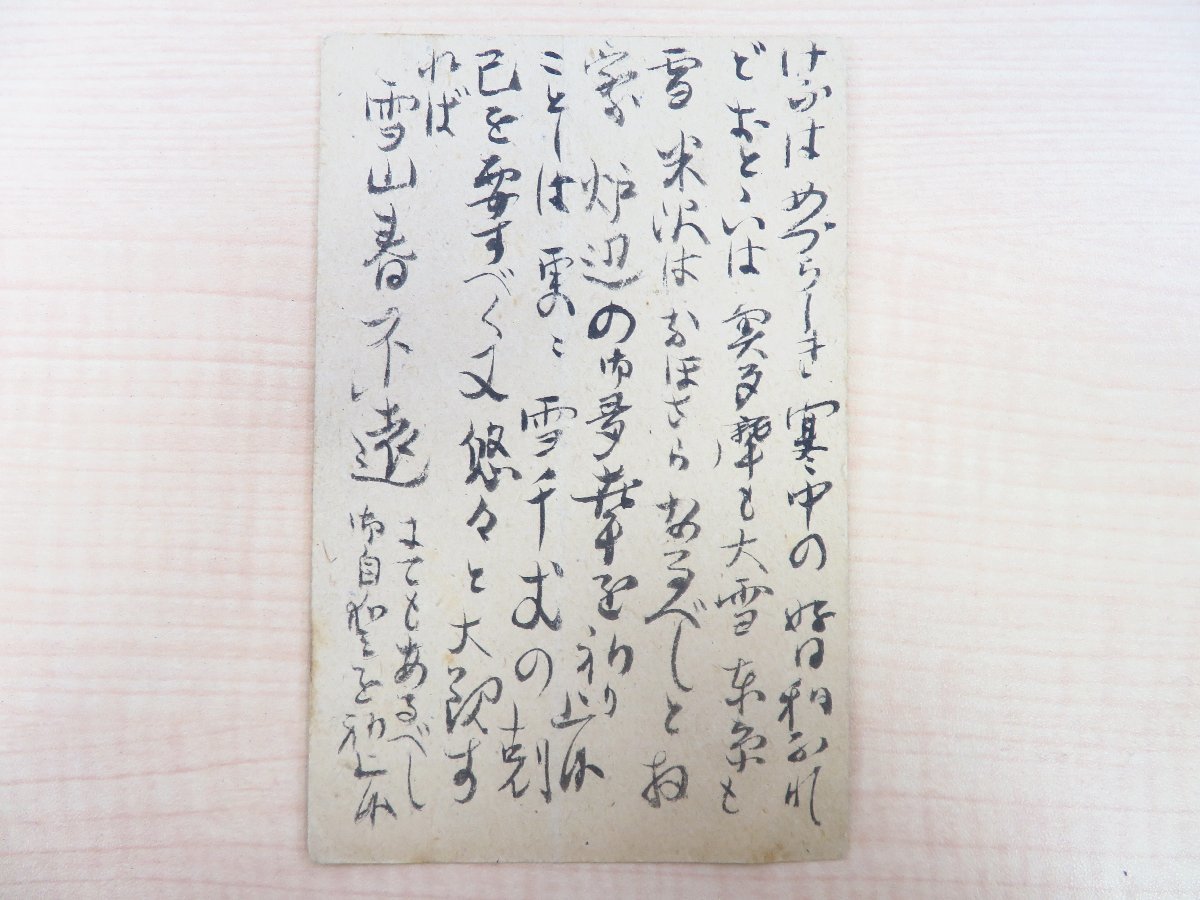 けふはめづらしき寒中の好日和なれ
どおとゝいは奥多摩も大雪東京も
雪米沢はなほさらなるべしとお
察 炉辺の御多幸を祈り上候
ことしは雪の 雪千丈の克
己を要すべく又悠々と大観す
れば
雪山春不遠
まてもあるべし
御自愛を祈上候